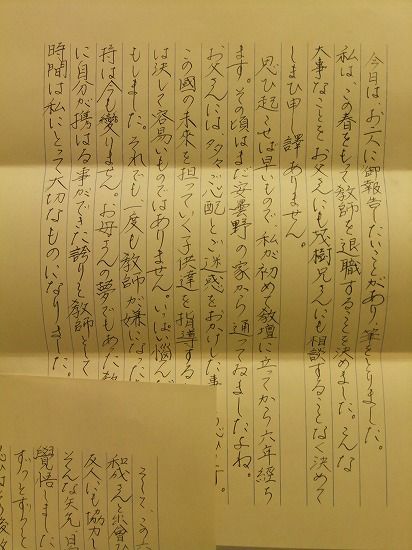 今日は、お二人に御報告したいことがあり筆をとりました。
私は、この春をもって教師を退職することを決めました。こんな
大事なことをお父さんにも茂樹兄さんにも相談することなく決めて
しまひ申し訳ありません。
思ひ起こせば早いもので、私が初めて教壇に立ってから六年経ち
ます。その頃はまだ安曇野の家から通ってねましたよね。
お父さんには多々ご心配とご迷惑をおかけした事
この國の未來を担っていく子供達を指導する
は決して容易いものではありません。いっぱい悩んだ
もしました。それでも一度も教師が嫌になった
持は今も變りません。お母さんの夢でもあた教
に自分が携はる事ができた誇りと教師として
時間は私にとって大切なものになりました。
そして、この六
和成さんと出會ひ
友人にも協力し
そんな矢先
覺悟しました
ずっとずっと